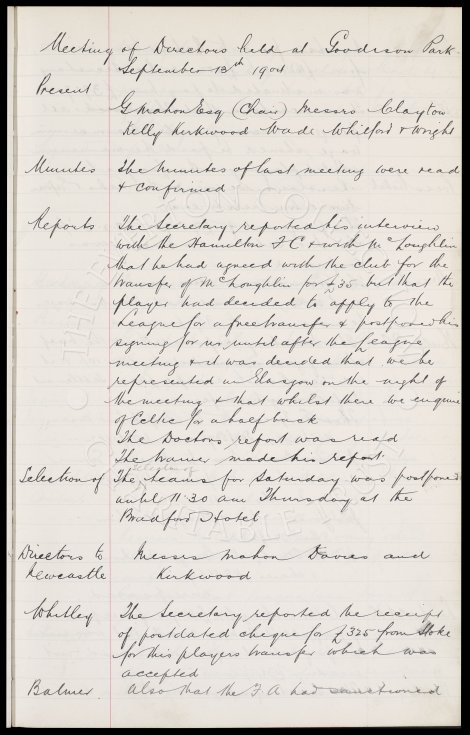 Meeting of Directors held at Goodison Park
September 13th 1904
Present
G Mahon Esq (Chair) Messrs Clayton
Kelly Kirkwood Wade Whitford & Wright
Minutes The Minutes of last meeting were read
& confirmed
Reports The Secretary reported his interview
with the Hamilton F C & with McLoughlin
that he had agreed with the club for the
transfer of McLoughlin for £35 but that the
player had decided to apply to the
League for a free transfer & postponed his
signing for us until after the League
meeting & it was decided that we be
represented in Glasgow on the night of
the meeting & that whilst there we enquire
of Celtic for a half back
The Doctors report was read
The trainer made his report
Selection of The Selection of teams for Saturday was postponed
until 11.30 am Thursday at the
Bradford Hotel
Directors to Messrs Mahon Davies and
Newcastle Kirkwood
Whitley The Secretary reported the receipt
of postdated cheque for £325 from Stoke
for this players transfer which was
accepted
Balmer. Also that the F A had sanctioned